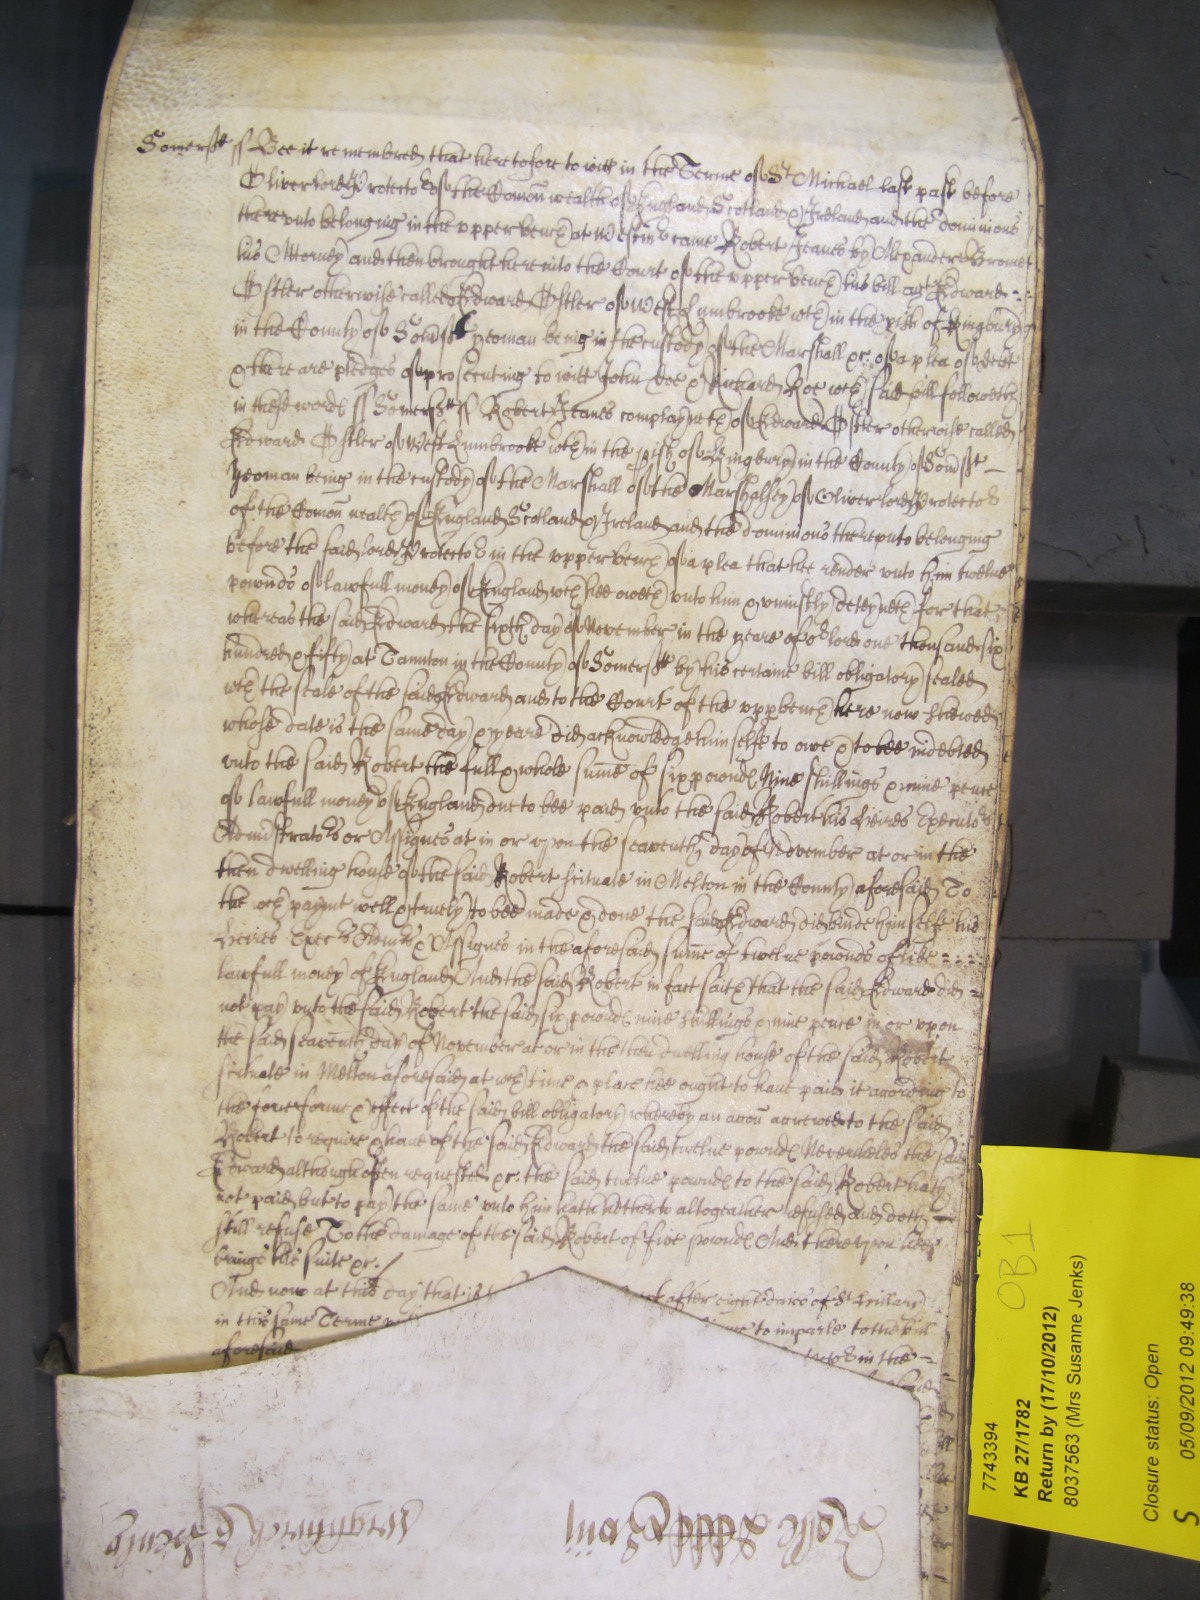 Somersett ss Bee it remembred that heretofore to witt in the Terme of St Michael last past before
Oliver lord Protector of the Comon wealth of England Scotland & Ireland and the dominions
thereunto belonging in the upper bench at Westmr came Robert Jeanes by Alexander
his Attorney and then brought here into the Court of the upper bench his bill agt Edward
Ostler otherwise called Edward Ostler of West Lambrooke wch in the pish of Kingbury
in the County of Somst yeoman being in the custody of the Marshall &c: of a plea of debt
& there are pledges of prosecuting to witt John Doe & Richard Roe wch said bill followeth
in these words ss Somersett ss Robert Jeanes complayneth of Edward Ostler otherwise called
Edward Ostler of West Lambrooke wthin the pish of Kingbury in the County of Somst
yeoman being in the custody of the Marshall of the Marshalsey of Oliver lord Protector
of the Comon wealth of England Scotland & Ireland and the dominions thereunto belonging
before the said lord Protector in the upper bench of a plea that hee render unto him twelve
pounds of lawfull money of England wch hee oweth unto him & uniustly deteyneth for that
whereas the said Edward the sixth day of November in the yeare of or lord one thousand six
hundred & fifty at Taunton in the County of Somersett by his certaine bill obligatory sealed
wth the seale of the said Edward and to the Court of the upp bench here now shewed
whose date is the same day & yeare did acknowledge himselfe to owe & to bee indebted
unto the said Robert the full & whole sume of six pounds Nine shillings & nine pence
of lawfull money of England one to bee paid unto the said Robert his heires Executors
Administrators or Assignes at in or upon the seaventh day of November at or in the
then dwelling house of the said Robert scituate in Melton in the County aforesaid To
the wch paymt well & truely to bee made & done the said Edward did binde himselfe his
heires & Assignes in the aforesaid sume of twelve pounds of like
lawfull money of England And the said Robert in fact saith that the said Edward did
not pay unto the said Robert the said six pounds nine shillings & nine pence in or upon
the said seaventh day of November at or in the then dwelling house of the said Robert
scituate in Melton aforesaid at wch time & place hee ought to have paid it according to
the forme & effect of the said bill obligatory whereby an accon accrewed to the said
Robert to require & have of the said Edward the said twelve pounds Neverthelss the said
Edward although often requested &c. the said twelve pounds to the said Robert hath
not paid but to pay the same unto him hath hetherto altogeather refused and doth
still refuse To the damage of the said Robert of five pounds And thereupon hee
brings his suite &c.
And now at this day that is after eight daies of St Hillary
in this same Terme to imparle to the bill
aforesaid in the
said
7743394
KB 27/1782
Return by (17/10/2012)
8037563 (Mrs Susanne Jenks)
Closure status: Open
05/09/2012 09:49:38
S
OB1